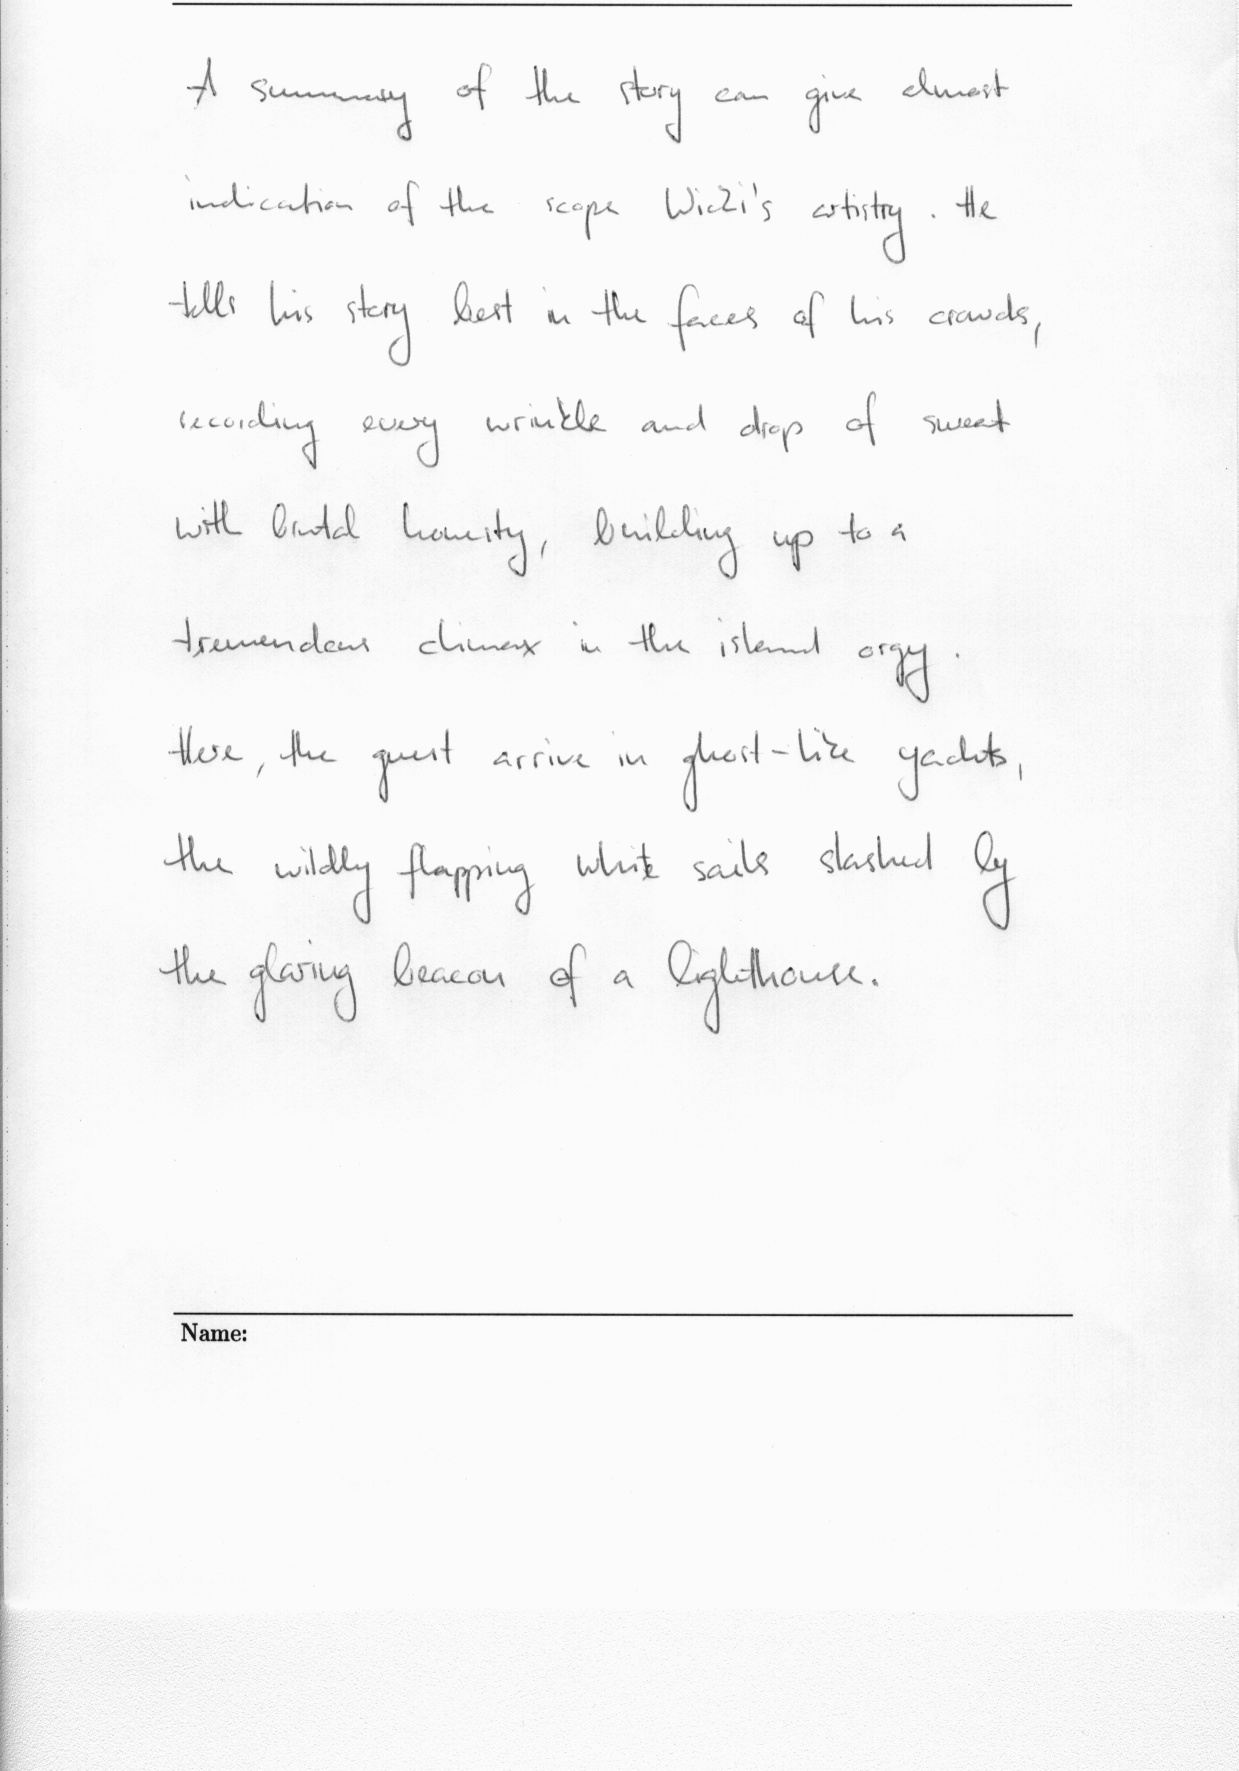 A summary of the story can give almost
indication of the scope Wicki's artistry. He
tells his story best in the faces of his crowds,
recording every wrinkle and drop of sweat
with brutal honesty, building up to a
tremendous climax in the island orgy.
Here, the guest arrive in ghost-like yachts,
the wildly flapping white sails slashed by
the glaring beacon of a lighthouse.
Name: